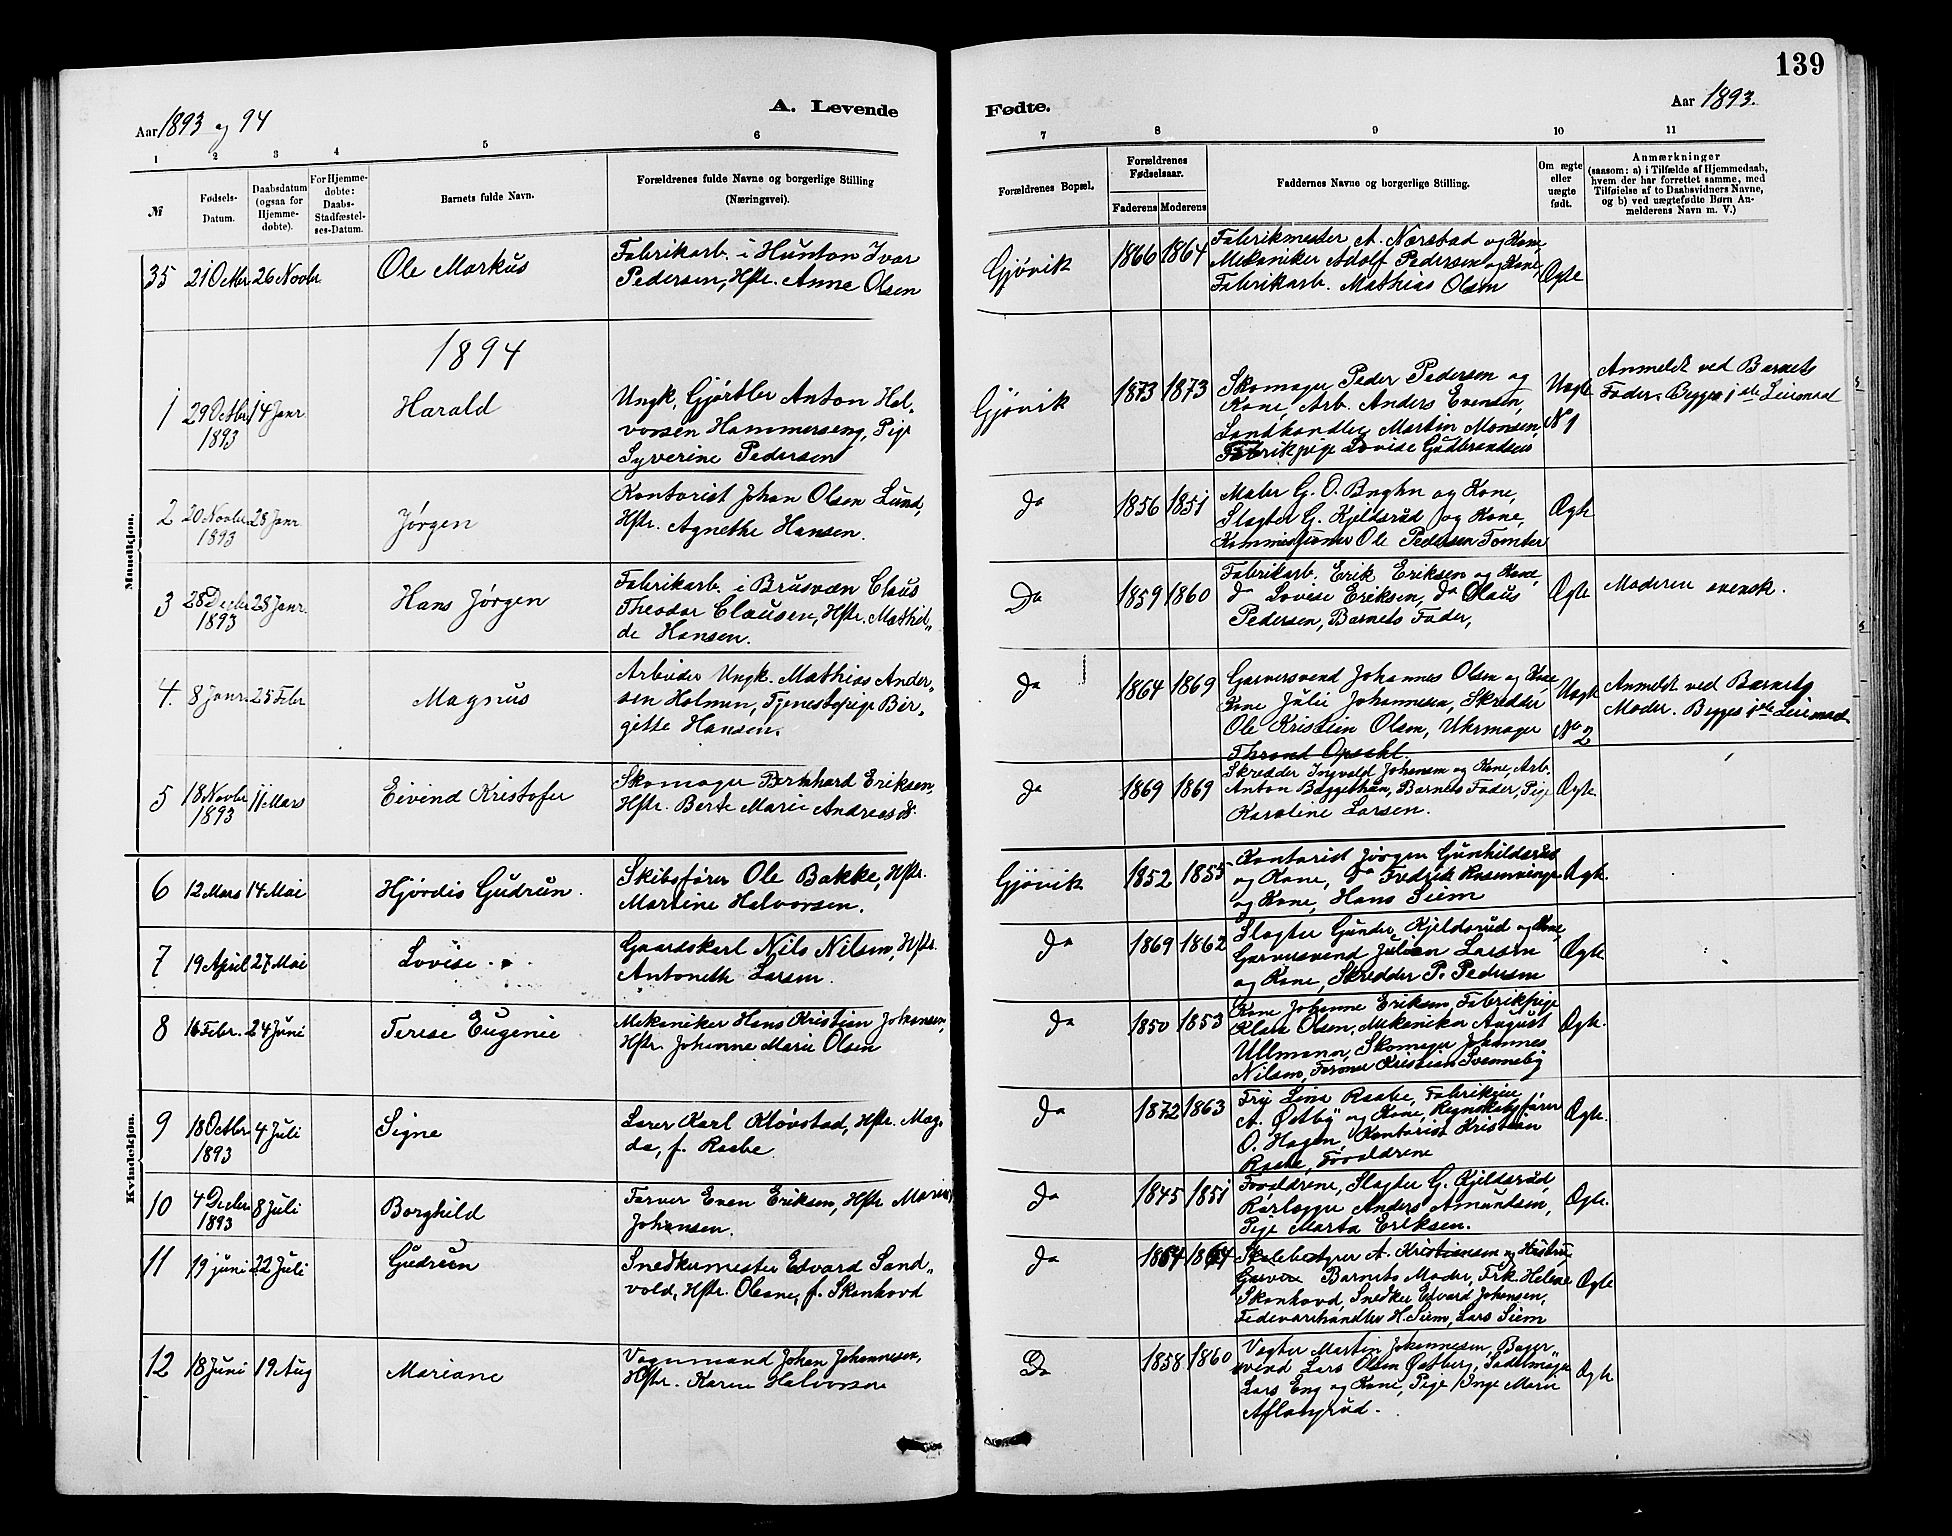 139
Aar 1893 og 94
A. Levende
Fødte.
Aar 1893.
1 2 3 4 5 6 7 8 9 10 11
№
Fødsels-
Datum.
Daabsdatum
(ogsaa for
Hjemme-
døbte).
For Hjemme-
døbte:
Daabs-
Stadfæstel-
ses-Datum.
Barnets fulde Navn.
Forældrenes fulde Navne og borgerlige Stilling
(Næringsvei).
Forældrenes Bopæl.
Forældrenes
Fødselsaar.
Faderens Moderens
Faddernes Navne og borgerlige Stilling.
Om ægte
eller
uægte
født.
Anmærkninger
(saasom: a) i Tilfælde af Hjemmedaab,
hvem der har forrettet samme, med
Tilføielse af to Daabsvidners Navne,
og b) ved uægtefødte Børn An-
melderens Navn m. V.)
Mandkjøn.
35 21 Octbr. 26 Novbr.
Ole Markus
Fabrikarb. i Hunton Ivar
Pedersen, Hstr. Anne Olsen
Gjøvik
1866 1864
Fabrikmester A. Nærstad og Kone,
Mekaniker Adolf Pedersen og Kone,
Fabrikarb. Mathias Olsen
Ægte
1894
1 29 Octbr. 14 Janr.
1893
Harald
Ungk. Gjørtler Anton Hal-
vorsen Hammerseng, Pige
Syverine Pedersen
Gjøvik
1873 1873
Skomager Peder Pedersen og
Kone, Arb. Anders Evensen,
Landhandler Martin Monsen,
Fabrikpige Lovise Gudbrandsen
Uægte
N 1
Anmeldt ved Barnets
Fader. Begges 1ste Leiermaal
2 20 Novbr. 28 Janr.
1893
Jørgen
Kontorist Johan Olsen Lund,
Hstr. Agnethe Hansen.
Do
1856 1851
Maler G. O. og Kone,
Slagter G. Kjeldsrud og Kone,
Kommissioner Ole Pedersen Tomter
Ægte
3 28 Decbr. 28 Janr.
1893
Hans Jørgen
Fabrikarb. i Brusvæn Claus
Theodor Clausen, Hstr. Mathil-
de Hansen.
Do
1859 1860
Fabrikarb. Erik Eriksen og Kone,
do Lovise Eriksen, do Olaus
Pedersen, Barnets Fader,
Ægte
Moderen svensk.
4. 8 Janr. 25 Febr
Magnus
Arbeider Ungk. Mathias Ander-
sen Holmen, Tjenestepige Bir-
gitte Hansen.
Do
1864 1869
Garversvend Johannes Olsen og Kone,
Kone Julie Johannesen, Skredder
Ole Kristian Olsen, Uhrmager
Thrond Opsahl
Uægte
No 2
Anmeldt ved Barnets
Moder. Begges 1ste Leiermaal
5 18 Novbr. 11 Mars
1893
Eivind Kristofer
Skomager Bernhard Eriksen,
Hstr. Berte Marie Andreasd.
Do
1869 1869
Skredder Ingvald Johansen og Kone, Arb.
Anton Baggethun, Barnets Fader, Pige
Karoline Larsen.
Ægte.
Kvindekjøn.
6 12 Mars 14 Mai
Hjørdis Gudrun.
Skibsfører Ole Bakke, Hstr.
Martine Halvorsen.
Gjøvik
1852 1855
Kontorist Jørgen Gunhildsrud
og Kone, do Fredrik Rosenvinge
og Kone, Hans Siem
Ægte.
7 19 April 27 Mai
Lovise
Gaardskarl Nils Nilsen, Hstr.
Antoneth Larsen.
Do
1869 1862
Slagter Gunder Kjeldsrud og Kone,
Garversvend Julian Larsen
og Kone, Skredder P. Pedersen
Ægte
8 16 Febr. 24 Juni
Terese Eugenie
Mekaniker Hans Kristian Johansen,
Hstr. Johanne Marie Olsen
Do
1850 1853
Kone Johanne Eriksen, Fabrikpige
Klara Olsen, Mekaniker August
Ullmann, Skomager Johannes
Nilsen, Former Kristian Svenneby
Ægte.
9 18 Octbr. 4 Juli
1893
Signe
Lærer Karl Kløvstad, Hstr. Mag-
da, f. Raabe
Do
1872 1863
Lina Raabe,
A. Østby og Kone, Regnskabsfører
O. Hagen, Kontorist Kristian
Raabe, Forældrene
Ægte.
10 4 Decbr. 8 Juli
1893
Borghild
Farver Even Eriksen, Hstr. Marie
Johansen.
Do
1845 1851
Forældrene, Slagter G. Kjeldsrud,
Rørlægger Anders Amundsen,
Pige Marta Eriksen.
Ægte.
11 19 juni 22 Juli
Gudrun
Snedkermester Edvard Sand-
vold, Hstr. Oleane, f. Skonhovd
Do
1864 1864
Skolebestyrer A. Kristiansen og Hustru,
Barnets Moder, Frk. Helene
Skonhovd, Snedker Edvard Johansen,
Fedevarehandler H. Siem, Lars Siem
Ægte
12 18 Juni 19 Aug
Mariane
Vognmand Johan Johannesen,
Hstr. Karen Halvorsen
Do
1858 1860
Vogter Martin Johannesen, Bager-
svend Lars Olsen Østberg, Sadelmager
Lars Eng og Kone, Pige Inge Marie
Aflangrud.
Ægte